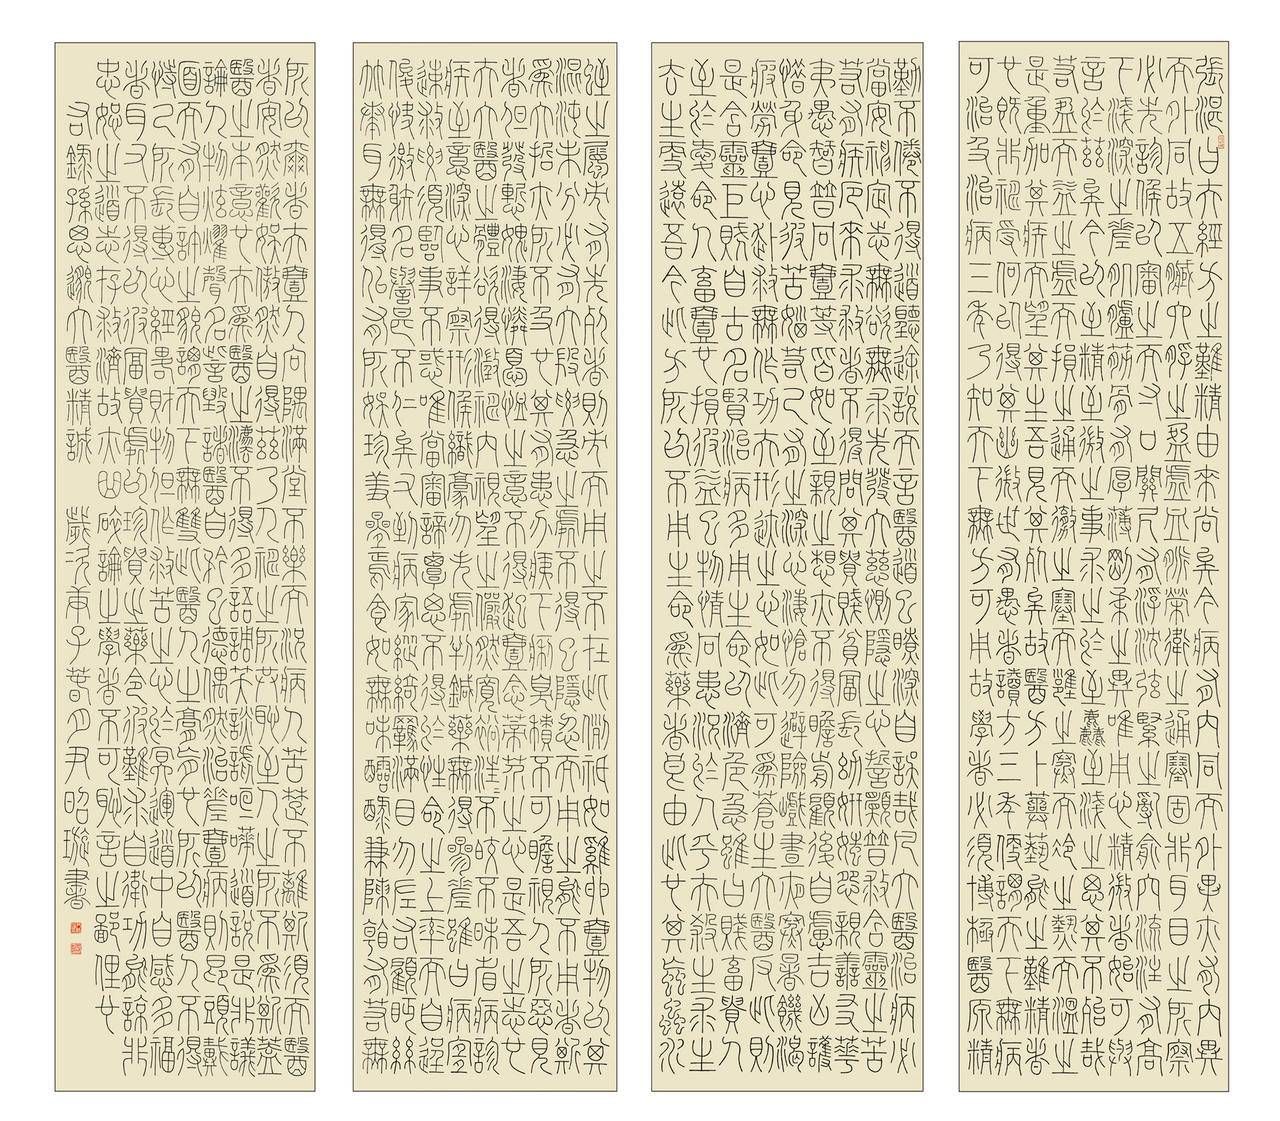 張湛曰夫經方之難精由來尚矣今病有內同而外異亦有內異
而外同故五臟六腑之盈虛血脈榮衛之通塞固非耳目之所察
必先診候以審之而寸口關尺有浮沉弦緊之亂俞穴流注有高
下淺深之差肌膚筋骨有厚薄剛柔之異唯用心精微者始可與
言於茲矣今以至精至微之事求之於至麤至淺之思其不殆哉
若盈而益之虛而損之通而徹之塞而壅之寒而冷之熱而溫之
是重加其疾而望其生吾見其死矣故醫方卜筮藝能之難精者
也既非神授何以得其幽微世有愚者讀方三年便謂天下無病
可治及治病三年乃知天下無方可用故學者必須博極醫源精
勤不倦不得道聽途說而言醫道已了深自誤哉凡大醫治病必
當安神定志無欲無求先發大慈惻隱之心誓願普救含靈之苦
若有疾厄來求救者不得問其貴賤貧富長幼妍媸怨親善友華
夷愚智普同一等皆如至親之想亦不得瞻前顧後自慮吉凶護
惜身命見彼苦惱若己有之深心悽愴勿避險巇晝夜寒暑飢渴
疲勞一心赴救無作功夫形跡之心如此可為蒼生大醫反此則
是含靈巨賊自古名賢治病多用生命以濟危急雖曰賤畜貴人
至於愛命人畜一也損彼益己物情同患況於人乎夫殺生求生
去生更遠吾今此方所以不用生命為藥者良由此也其虻蟲水
蛭之屬市有先死者則市而用之不在此例只如雞卵一物以其
混沌未分必有大段要急之處不得已隱忍而用之能不用者斯
為大哲亦所不及也其有患瘡痍下痢臭穢不可瞻視人所惡見
者但發慚愧悽憐憂恤之意不得起一念蒂芥之心是吾之志也
夫大醫之體欲得澄神內視望之儼然寬裕汪汪不皎不昧省病診
疾至意深心詳察形候纖毫勿失處判鍼藥無得參差雖曰病宜
速救要須臨事不惑唯當審諦覃思不得於性命之上率而自逞
俊快邀射名譽甚不仁矣又到病家縱綺羅滿目勿左右顧眄絲
竹湊耳無得似有所娛珍羞迭薦食如無味醽醁兼陳看有若無
所以爾者夫一人向隅滿堂不樂而況病人苦楚不離斯須而醫
者安然歡娛傲然自得茲乃人神之所共恥至人之所不為斯蓋
醫之本意也夫為醫之法不得多語調笑談謔喧嘩道說是非議
論人物炫耀聲名訾毀諸醫自矜己德偶然治差一病則昂頭戴
面而有自許之貌謂天下無雙此醫人之膏肓也所以醫人不得
恃己所長專心經略財物但作救苦之心於冥運道中自感多福
者耳又不得以彼富貴處以珍貴之藥令彼難求自衒功能諒非
忠恕之道志存救濟故亦曲碎論之學者不可恥言之鄙俚也
右錄孫思邈大醫精誠 歲次庚子春月尹昭璇書